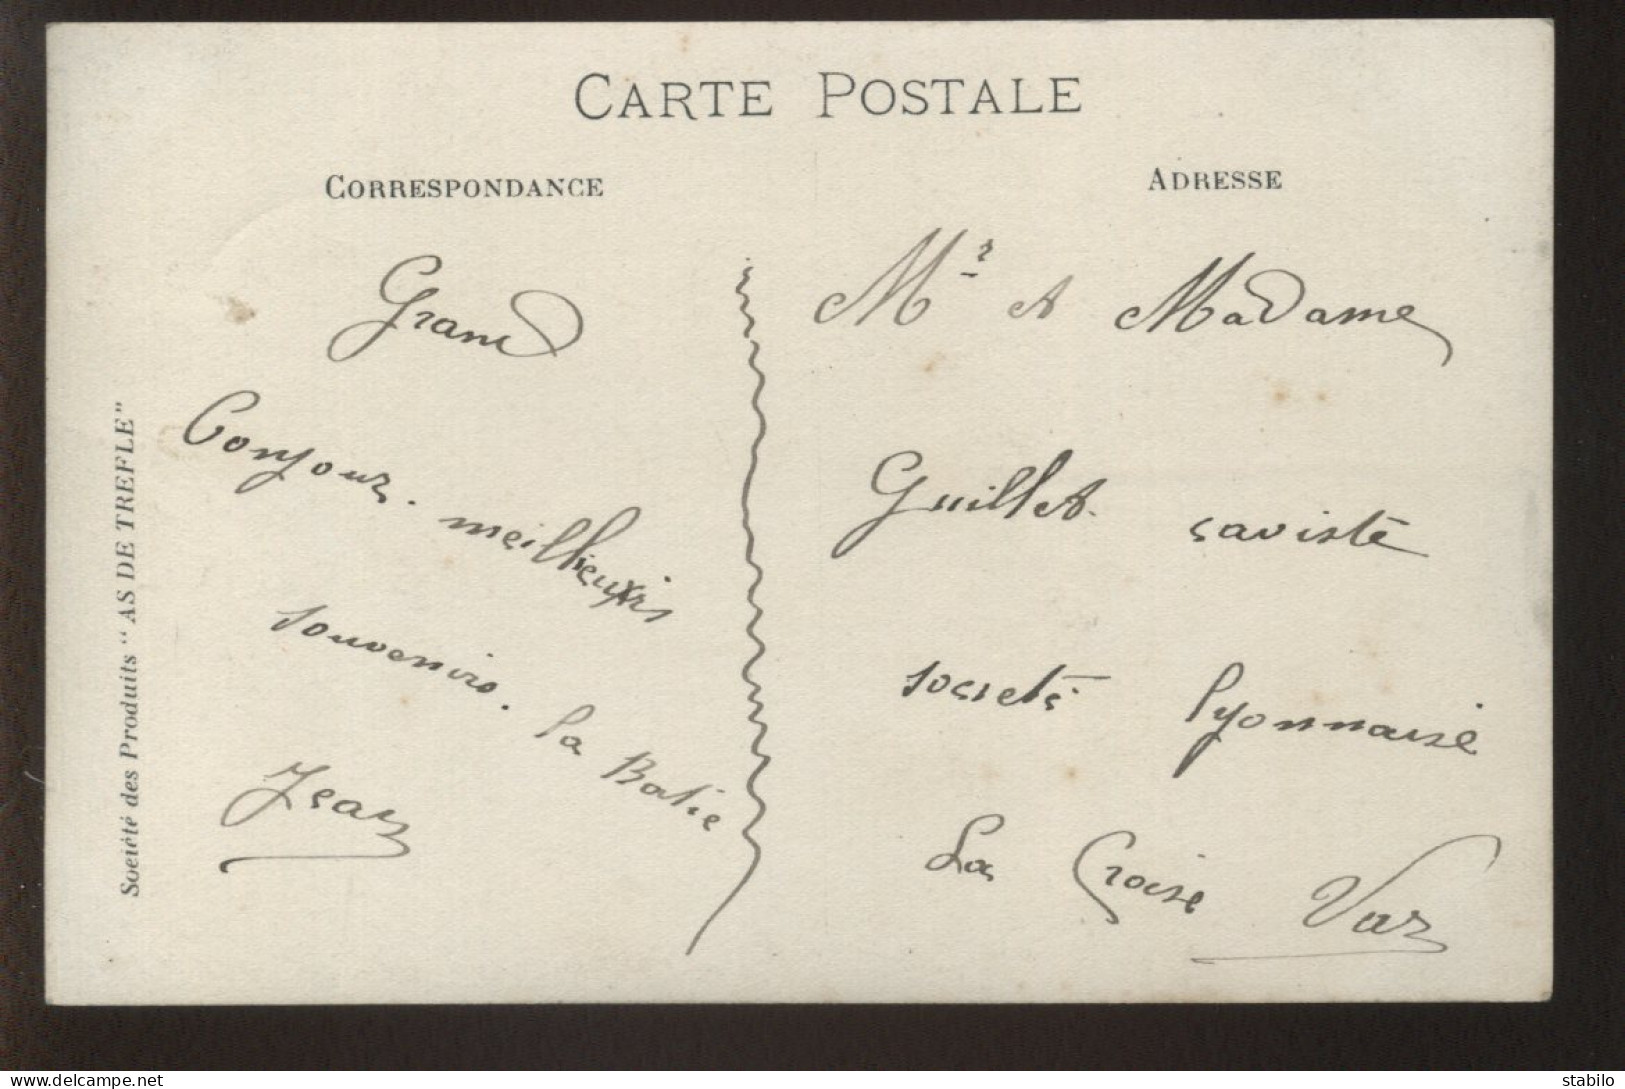 CARTE POSTALE
CORRESPONDANCE
ADRESSE
Grand
Bonjour. meillieurs
souvenirs. La Batie
Jean
Mr et Madame
Guillet caviste
societé lyonnaise
La Croise Var
Société des Produits "AS DE TREFLE"
stabilo